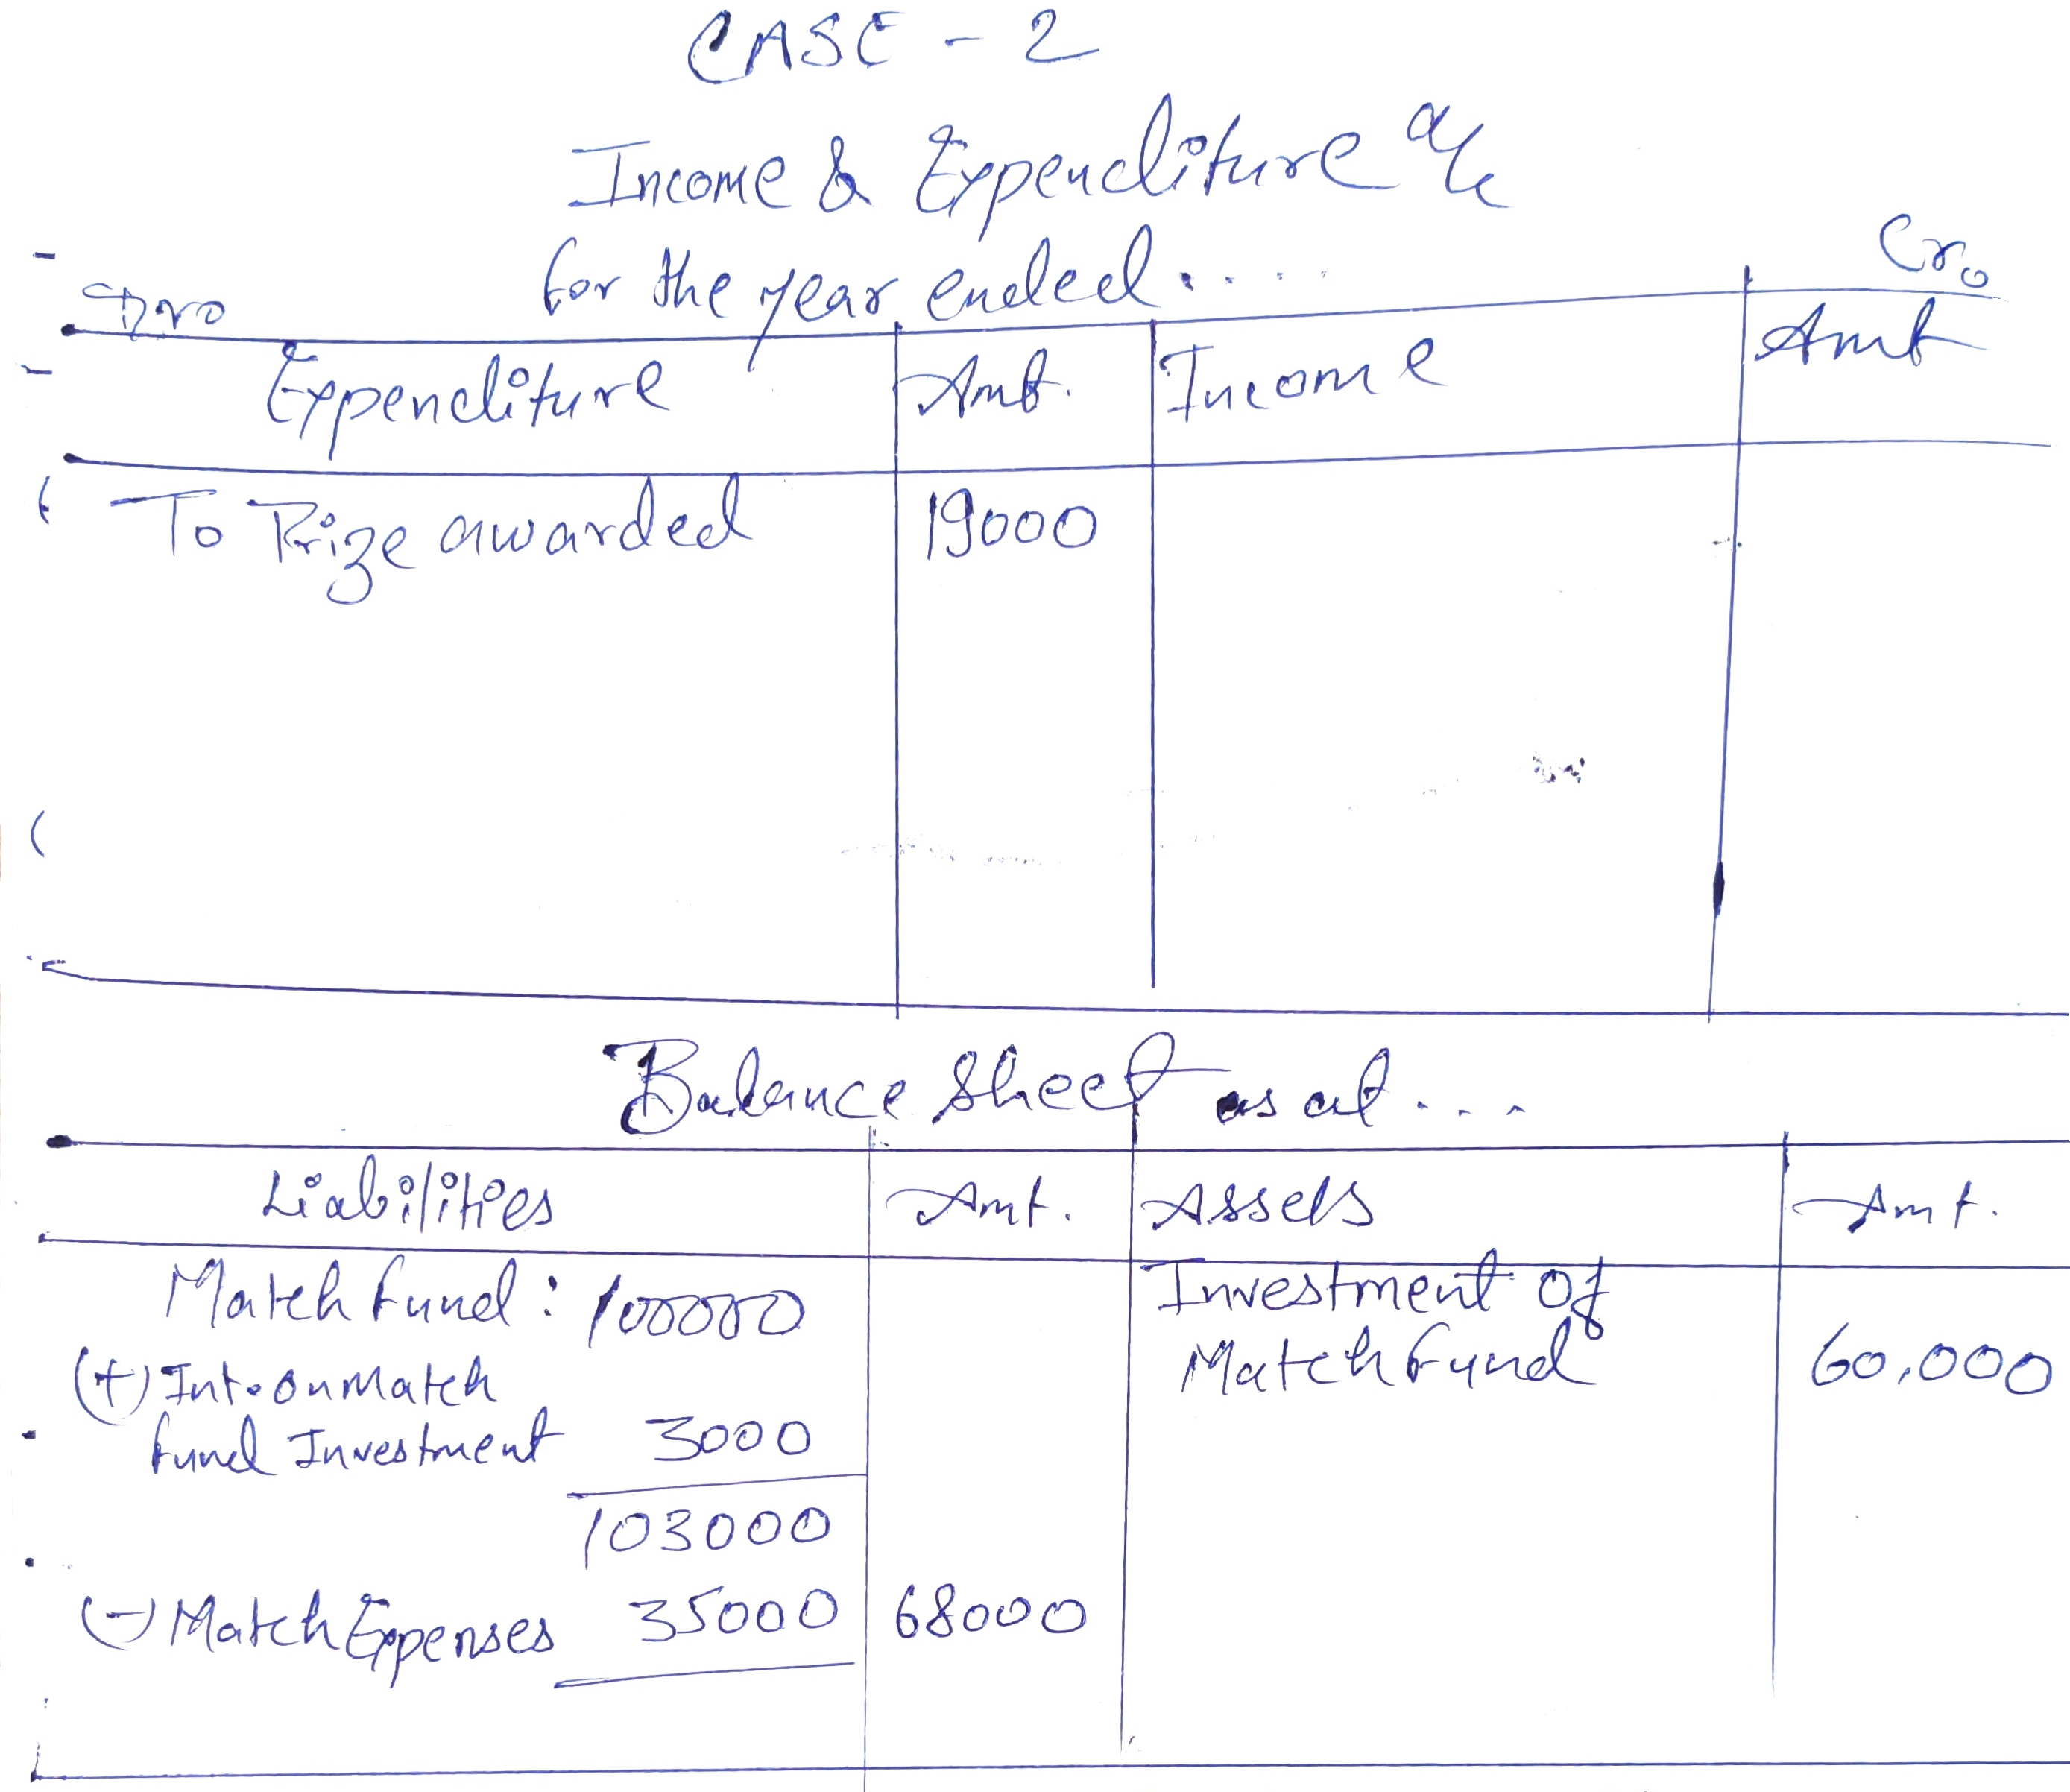 CASE - 2
Income & Expenditure a/c
for the year ended.....
Dr. Cr.
Expenditure Amt. Income Amt
To Prize awarded 19000
Balance Sheet as at ...
Liabilities Amt. Assets Amt.
Match Fund: 100000 Investment Of
(+) Int. on Match Match Fund 60,000
fund Investment 3000
103000
(-) Match Expenses 35000 68000